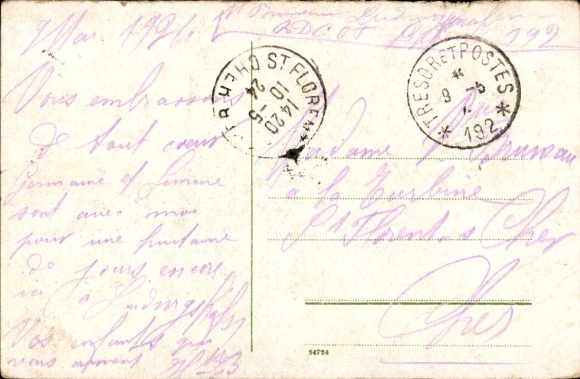 9 Mai 1924
Ludwigshafen
192
Vous embrassons
de tout coeur
Germaine et Simone
sont avec moi
pour une huitaine
de jours encore
ici à Ludwigshafen
Vos enfants qui
vous aiment
ST FLORENT CHER
14 20
10 -5
24
TRESOR ET POSTES
9 -5
* 192 *
Madame
à la Turbine
St Florent s Cher
Cher
24724